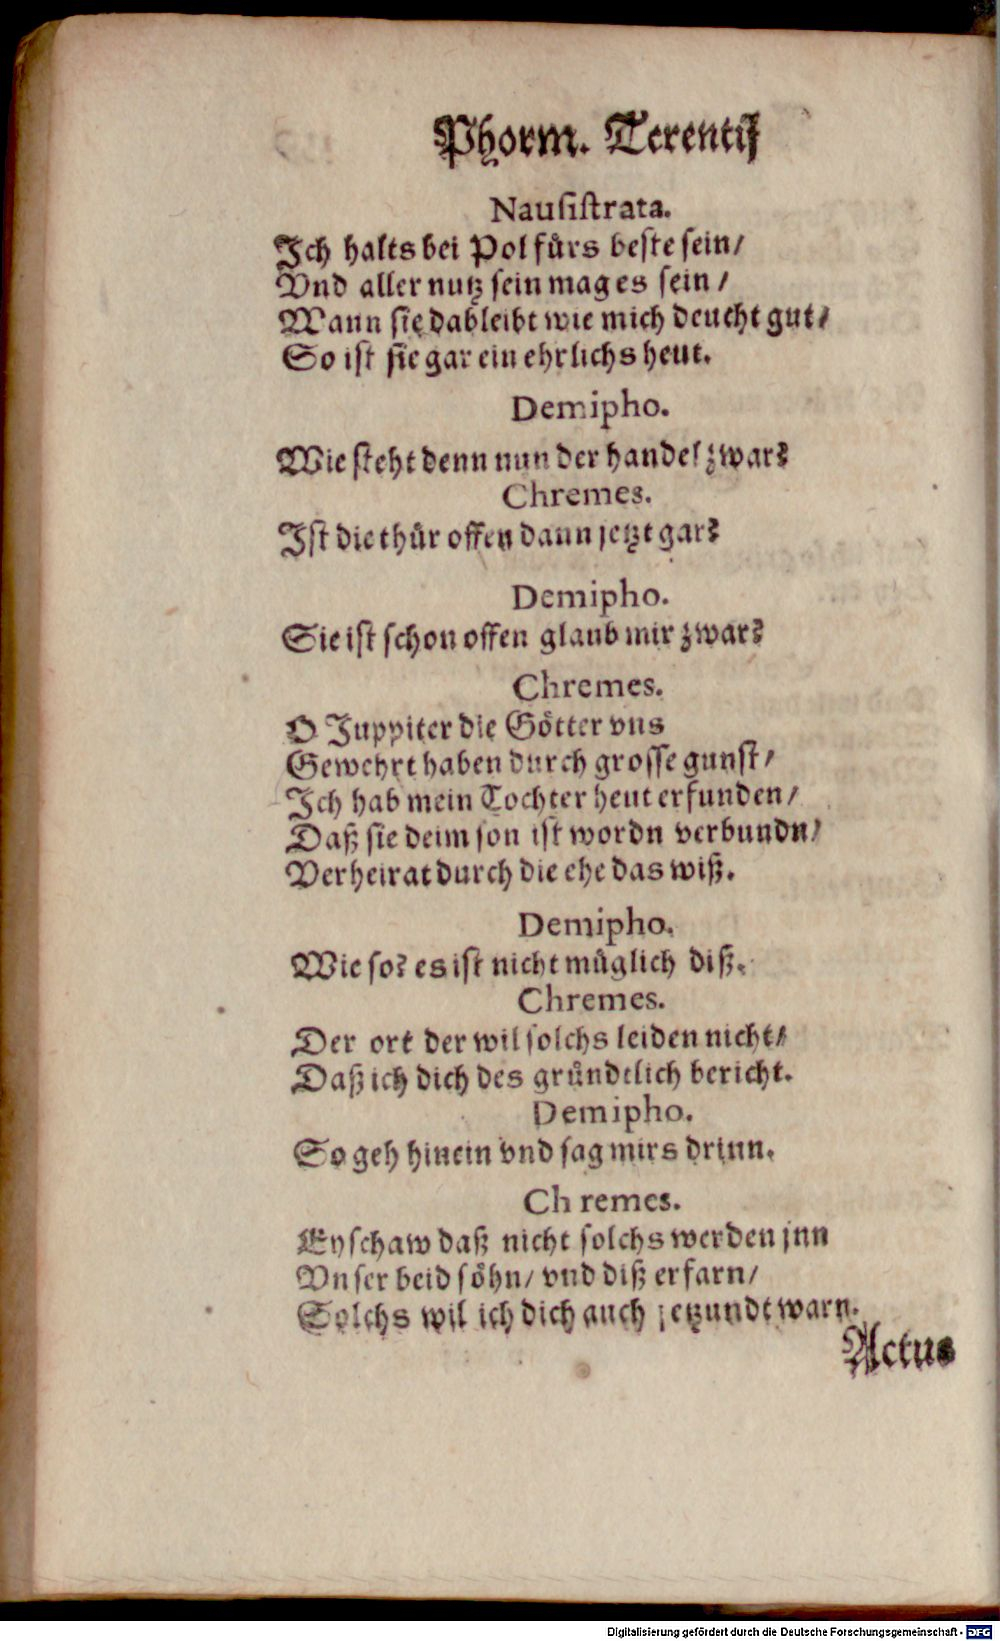 Phorm. Terentij
Nausistrata.
Ich halts bei Pol fürs beste sein/
Vnd aller nutz sein mag es sein/
Wann sie dableibt wie mich deucht gut/
So ist sie gar ein ehrlichs heut.
Demipho.
Wie steht denn nun der handel zwar?
Chremes.
Ist die thür offen dann jetzt gar?
Demipho.
Sie ist schon offen glaub mir zwar?
Chremes.
O Juppiter die Götter vns
Gewehrt haben durch grosse gunst/
Ich hab mein Tochter heut erfunden/
Daß sie deim son ist wordn verbundn/
Verheirat durch die ehe das wiß.
Demipho.
Wie so? es ist nicht müglich diß.
Chremes.
Der ort der wil solchs leiden nicht/
Daß ich dich des gründtlich bericht.
Demipho.
So geh hinein vnd sag mirs drinn.
Chremes.
Ey schaw daß nicht solchs werden jnn
Vnser beid söhn/ vnd diß erfarn/
Solchs wil ich dich auch jetzundt warn.
Actus
Digitalisierung gefördert durch die Deutsche Forschungsgemeinschaft - DFG